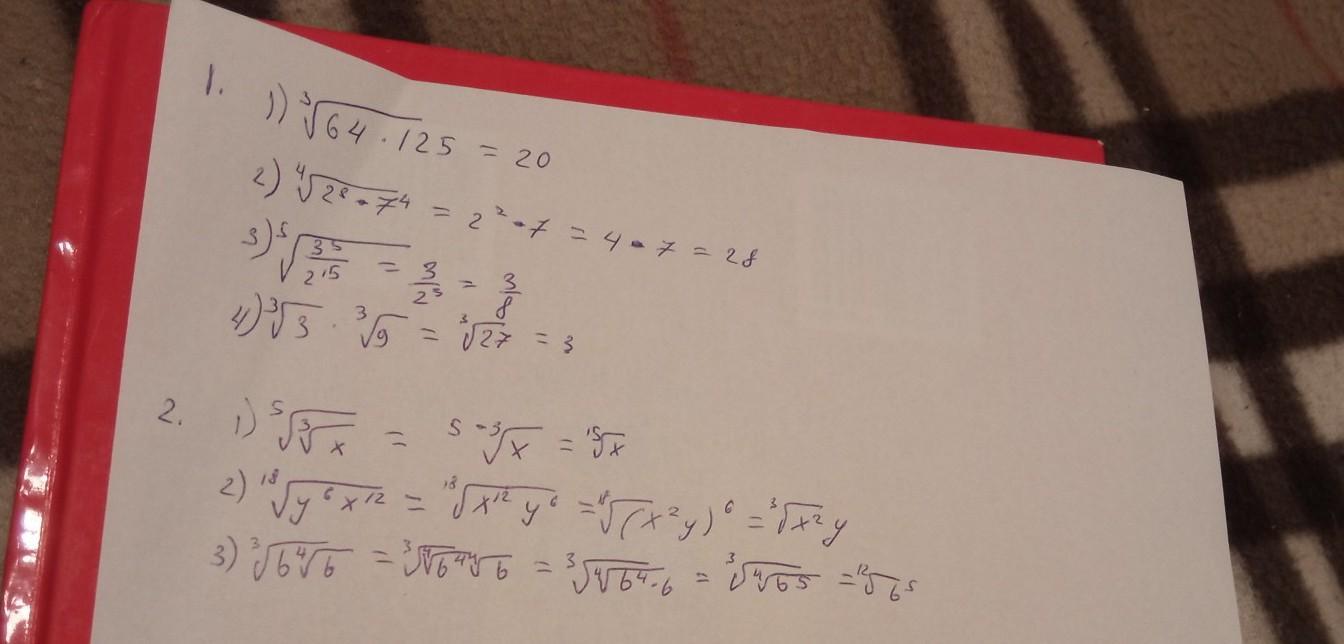 1. 1) ∛(64 · 125) = 20
2) ∜(2⁸ · 7⁴) = 2² · 7 = 4 · 7 = 28
3) ⁵√(3⁵/2¹⁵) = 3/2³ = 3/8
4) ∛3 · ∛9 = ∛27 = 3
2. 1) ⁵√(∛x) = ⁵·³√x = ¹⁵√x
2) ¹⁸√(y⁶x¹²) = ¹⁸√(x¹²y⁶) = ¹⁸√(x²y)⁶ = ∛(x²y)
3) ∛(6∜6) = ∛(∜6⁴∜6) = ∛(∜(6⁴·6)) = ∛(∜6⁵) = ¹²√6⁵